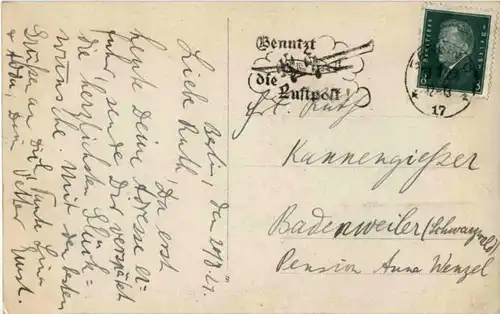 Berlin, den
Liebe Ruth,
Da erst
heute Deine Adresse er-
fuhr, sende Dir verspätet
die herzlichsten Glück-
wünsche. Mit den besten
Grüßen an Dich, Tante
Dein Vetter
Benutzt
die
Luftpost!
Frl. Ruth
Kannengießer
Badenweiler (Schwarzwald)
Pension Anna Wenzel
17